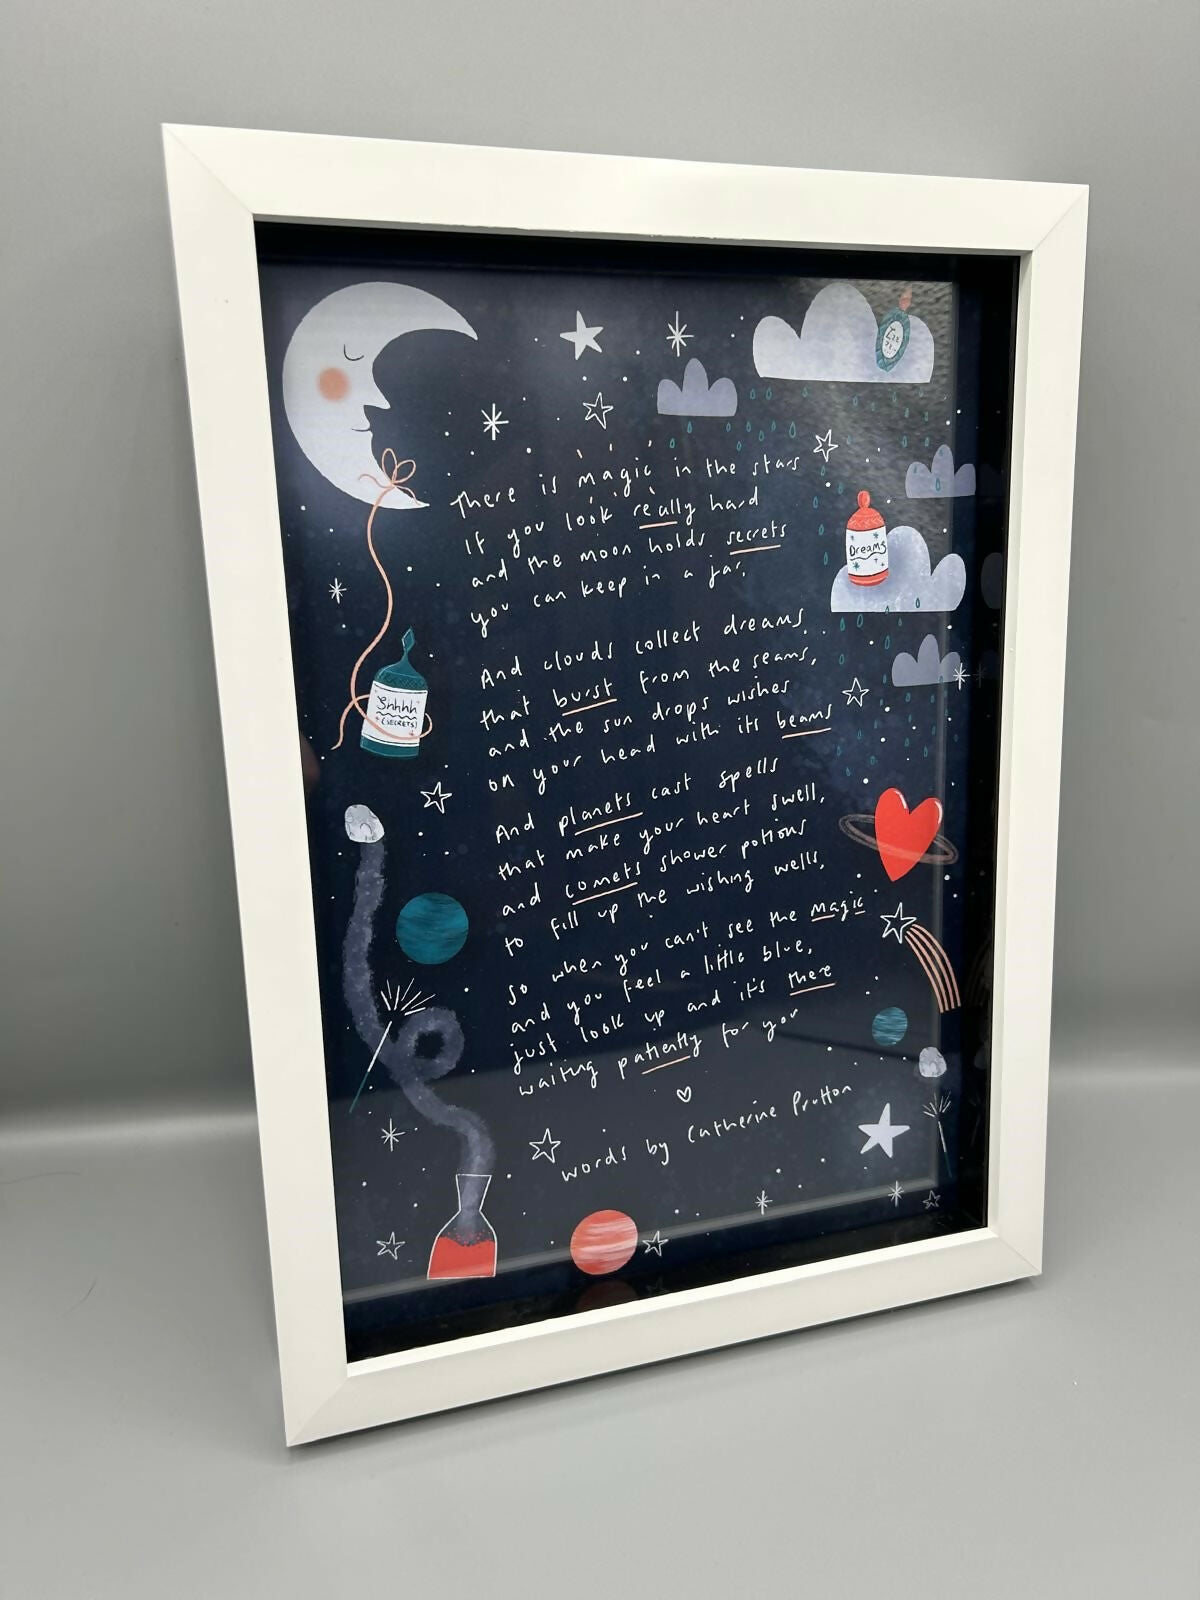 There is magic in the stars
If you look really hard
and the moon holds secrets
you can keep in a jar.
And clouds collect dreams
that burst from the seams,
and the sun drops wishes
on your head with its beams
And planets cast spells
that make your heart swell,
and comets shower potions
to fill up the wishing wells,
So when you can't see the magic
and you feel a little blue,
just look up and it's there
waiting patiently for you
words by Catherine Prutton
Shhhh
(SECRETS)
Dreams